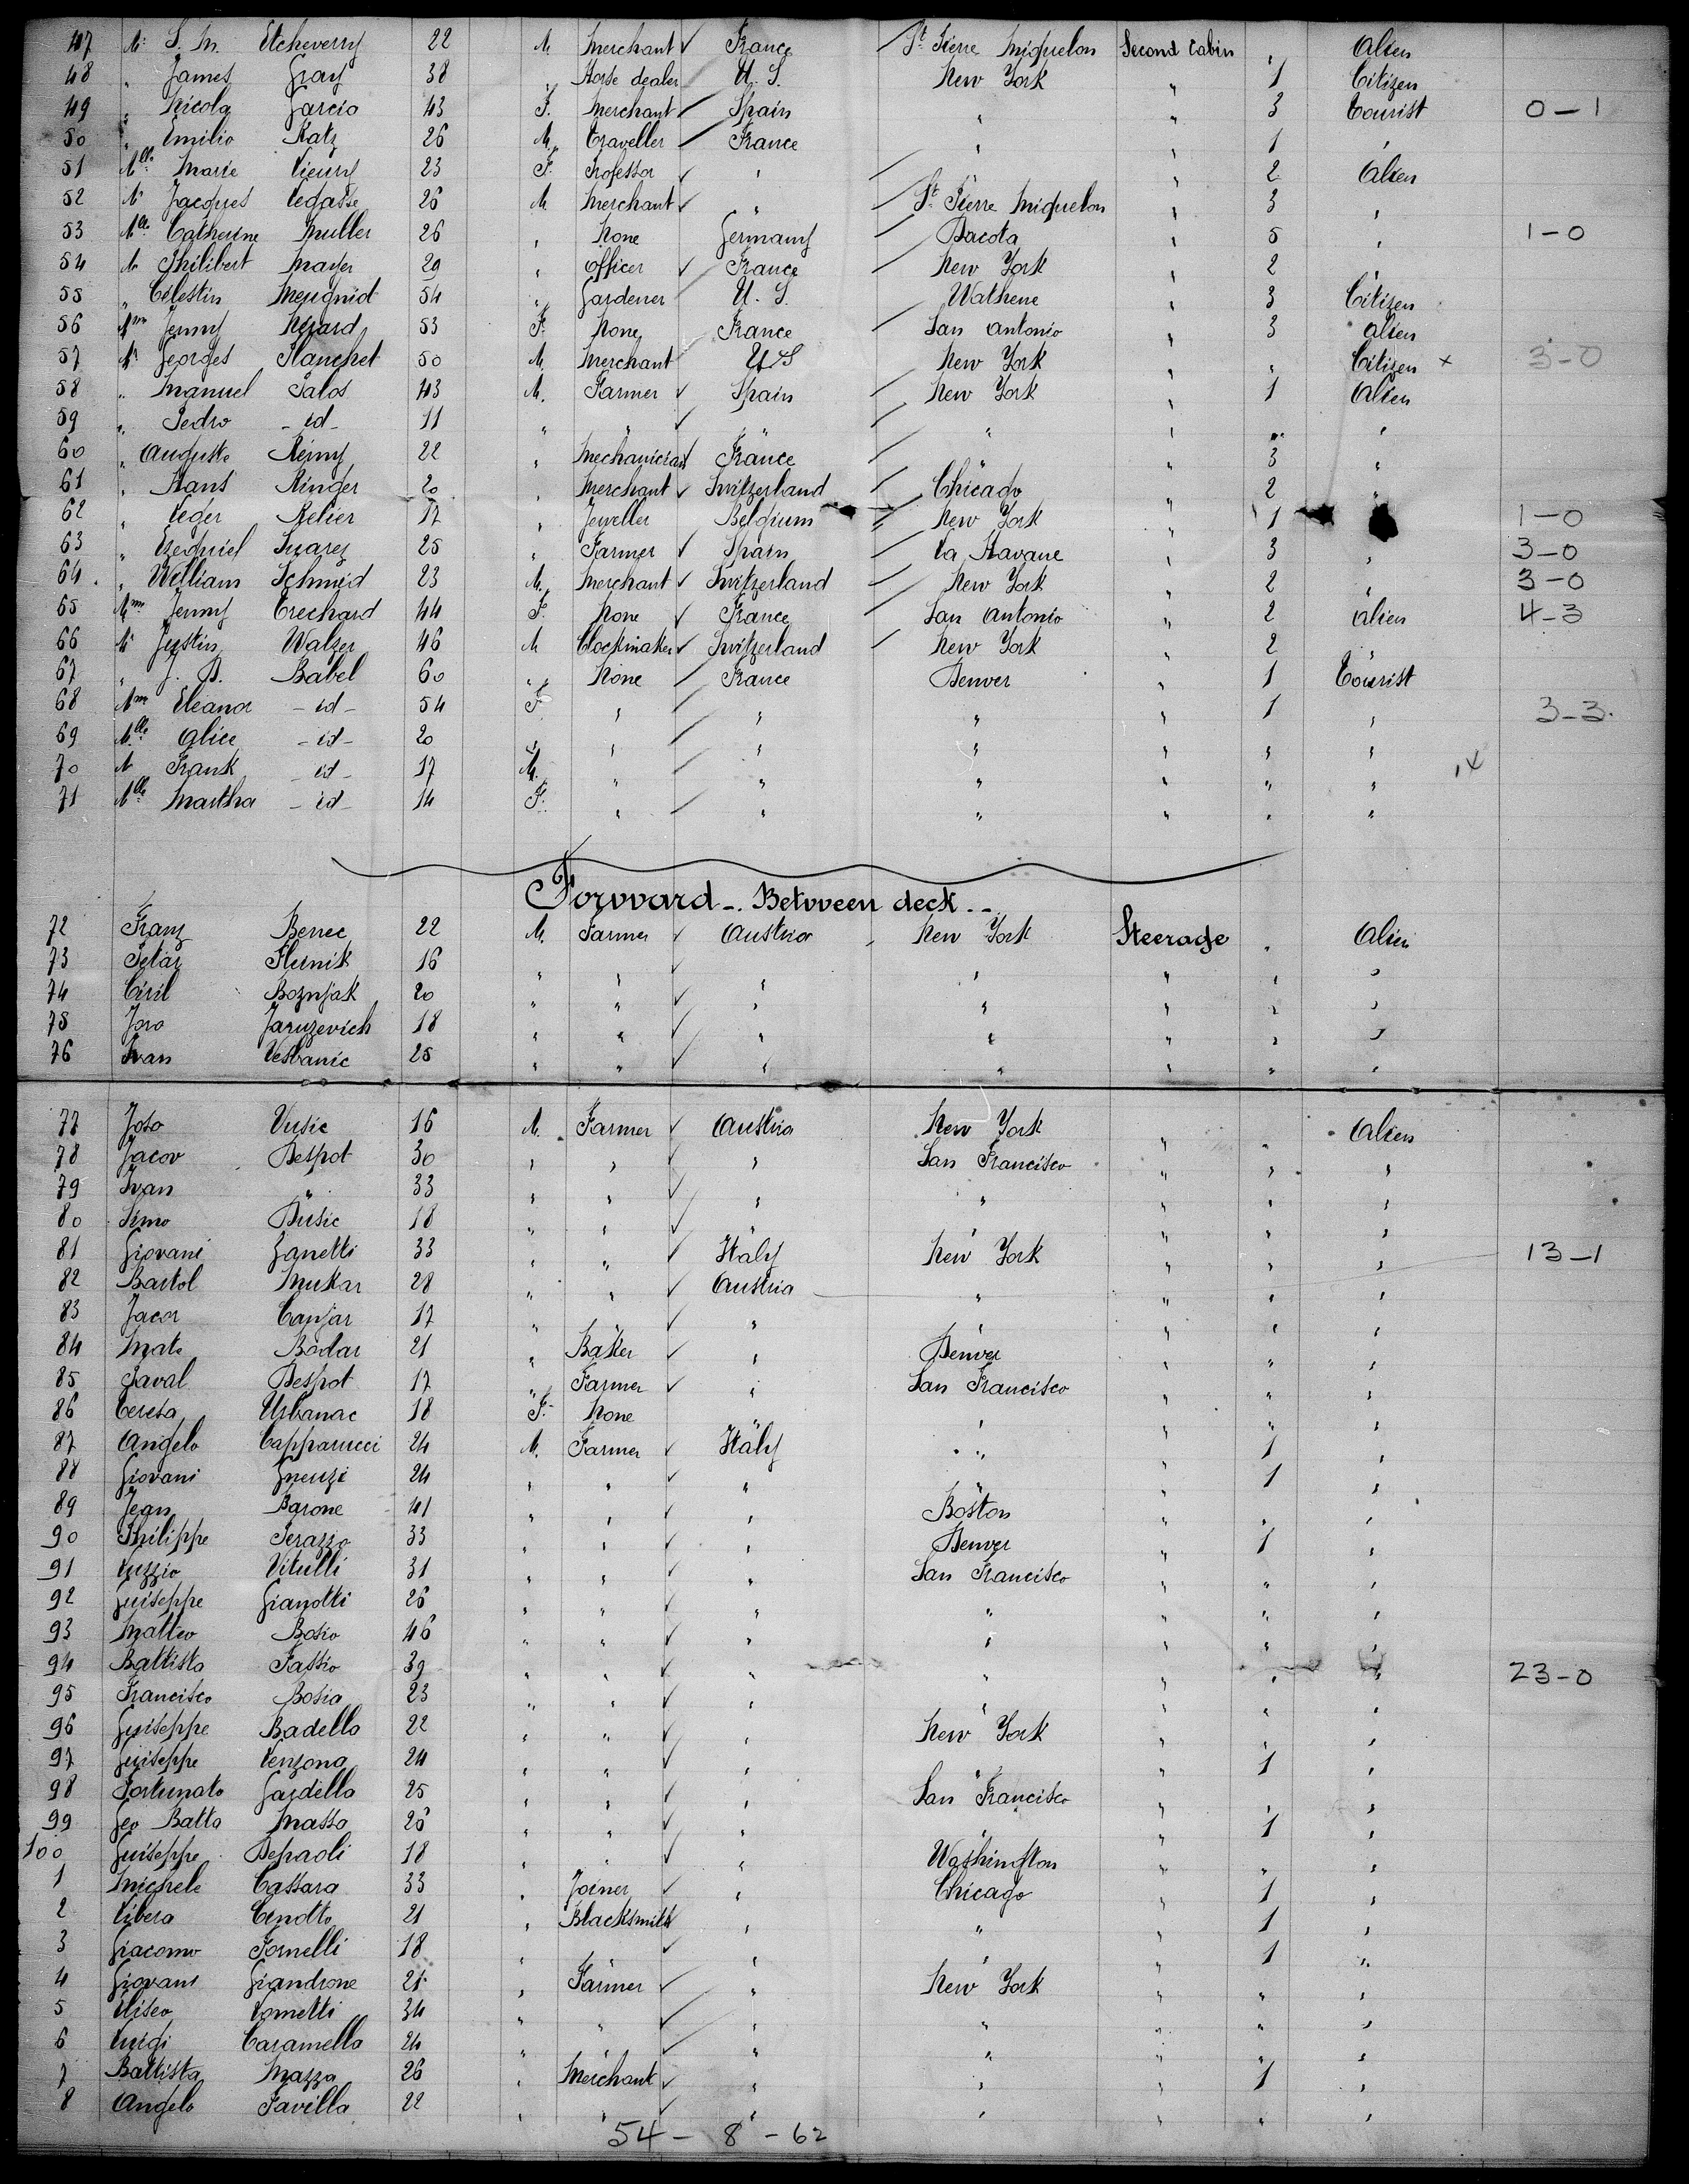 47 Mr S. M. Etcheverry 22 M Merchant France St Pierre Miquelon Second Cabin " Alien
48 " James Gray 38 " Horse dealer U. S. New York " 1 Citizen
49 " Nicola Garcio 43 F. Merchant Spain " " 3 Tourist 0-1
50 " Emilio Katz 26 M. Traveller France " " 1 "
51 Mlle Marie Vieury 23 F. Professor " " " 2 Alien
52 Mr Jacques Legasse 26 M Merchant " St Pierre Miquelon " 3 "
53 Mlle Catherine Muller 26 " None Germany Dacota " 5 " 1-0
54 Mr Philibert Mayer 29 " Officer France New York " 2 "
55 " Célestin Meugniot 54 " Gardener U. S. Wathene " 3 Citizen
56 Mme Jenny Hezard 53 F. None France San Antonio " 3 Alien
57 Mr Georges Planchet 50 M. Merchant US New York " " Citizen x 3-0
58 " Manuel Palos 43 M. Farmer Spain New York " 1 Alien
59 " Pedro -id- 11 " " " " " " "
60 " Auguste Rémy 22 " Mechanician France " " 3 "
61 " Hans Ringer 20 " Merchant Switzerland Chicago " 2 "
62 " Leger Relier 17 " Jeweller Belgium New York " 1 " 1-0
63 " Ezequiel Suarez 25 " Farmer Spain La Havane " 3 " 3-0
64 " William Schmid 23 M. Merchant Switzerland New York " 2 " 3-0
65 Mme Jenny Trechard 44 F. None France San Antonio " 2 Alien 4-3
66 Mr Justin Walzer 46 M Clockmaker Switzerland New York " 2 "
67 " J. B. Babel 60 " None France Denver " 1 Tourist
68 Mme Eleanor -id- 54 F " " " " 1 " 3-3
69 Mlle Alice -id- 20 " " " " " " "
70 Mr Frank -id- 17 M. " " " " " "
71 Mlle Martha -id- 14 F. " " " " " "
Forward - Between deck.-
72 Franz Benec 22 M. Farmer Austria New York Steerage " Alien
73 Petar Flurnik 16 " " " " " " "
74 Ciril Boznjak 20 " " " " " " "
75 Joro Jaruzevich 18 " " " " " " "
76 Ivan Vesbanic 25 " " " " " " "
77 Joso Vusic 16 M. Farmer Austria New York " " Alien
78 Jacov Despot 30 " " " San Francisco " " "
79 Ivan " 33 " " " " " " "
80 Simo Dusic 18 " " " " " " "
81 Giovani Zanetti 33 " " Italy New York " " " 13-1
82 Bartol Mukar 28 " " Austria " " " "
83 Jacov Canjar 17 " " " " " " "
84 Mate Bodar 21 " Baker " Denver " " "
85 Paval Despot 17 " Farmer " San Francisco " " "
86 Teresa Urbanac 18 F. None " " " " "
87 Angelo Capparucci 24 M. Farmer Italy " " 1 "
88 Giovani Gneuzi 24 " " " " " 1 "
89 Jean Barone 41 " " " Boston " " "
90 Philippe Perazzo 33 " " " Denver " 1 "
91 Luzzio Vitulli 31 " " " San Francisco " " "
92 Guiseppe Gianotti 26 " " " " " " "
93 Matteo Bosio 46 " " " " " " "
94 Battista Fassio 39 " " " " " " " 23-0
95 Francisco Bosia 23 " " " " " " "
96 Guiseppe Badello 22 " " " New York " " "
97 Guiseppe Venzona 24 " " " " " 1 "
98 Fortunato Gardella 25 " " " San Francisco " " "
99 Geo Batta Masso 26 " " " " " 1 "
100 Guiseppe Depaoli 18 " " " Washington " " "
1 Michele Cassara 33 " Joiner " Chicago " 1 "
2 Libera Cenotto 21 " Blacksmith " " " 1 "
3 Giacomo Fornelli 18 " " " " " 1 "
4 Giovani Giandrone 21 " Farmer " New York " " "
5 Eliseo Lometti 34 " " " " " " "
6 Luigi Caramello 24 " " " " " " "
7 Battista Mazza 26 " Merchant " " " 1 "
8 Angelo Favilla 22 " " " " " " "
54 - 8 - 62